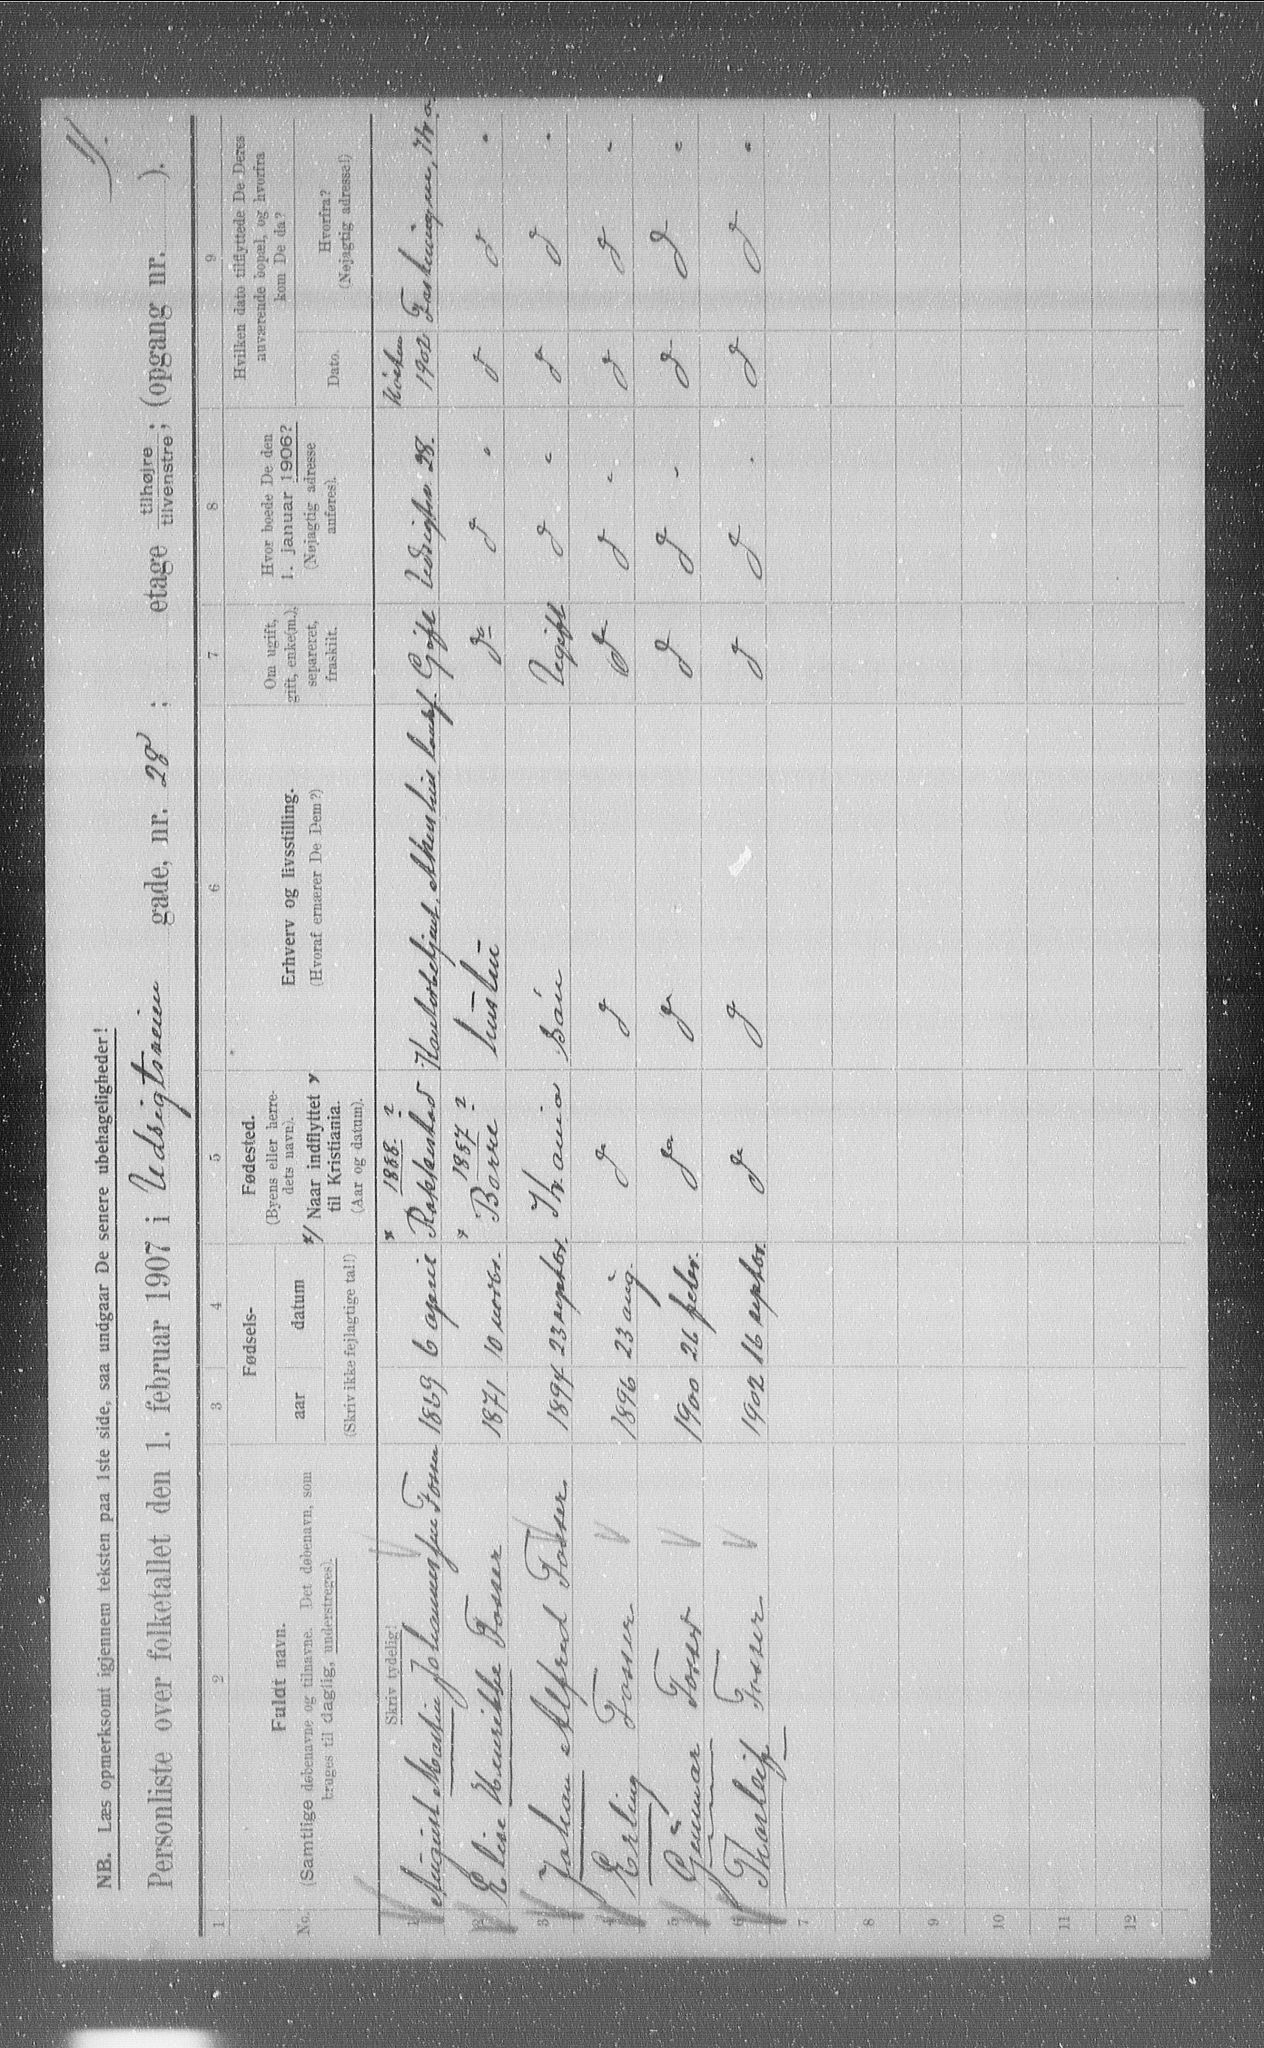 1/.
NB. Læs opmerksomt igjennem teksten paa 1ste side, saa undgaar De senere ubehageligheder!
Personliste over folketallet den 1. februar 1907 i Udsigtsveien gade, nr. 28 ; etage tilhøjre tilvenstre; (opgang nr. ).
1 2 3 4 5 6 7 8 9
No. Fuldt navn. (Samtlige døbenavne og tilnavne. Det døbenavn, som bruges til daglig, understreges).
Fødsels- aar datum (Skriv ikke fejlagtige tal!)
Fødested. (Byens eller herredets navn). x/ Naar indflyttet x til Kristiania. (Aar og datum).
Erhverv og livsstilling. (Hvoraf ernærer De Dem?)
Om ugift, gift, enke(m.), separeret, fraskilt.
Hvor boede De den 1. januar 1906? (Nøjagtig adresse anføres).
Hvilken dato tilflyttede De Deres nuværende bopæl, og hvorfra kom De da?
Dato. Hvorfra? (Nøjagtig adresse!)
Skriv tydelig!
x 1888. 2 Høsten
1 August Martin Johannessen Fosser 1869 6 april Rakkestad Kontorbetjent, Akershus Gift Udsigtsv. 28. 1902
x 1887 2
2 Elise Henrikke Fosser 1871 10 novbr. Borre hustru do d " d d "
3 Johan Alfred Fosser 1894 23 septbr. Kr.ania Sön Ugift d " d d "
4 Erling Fosser 1896 23 aug. d d do d " d d "
5 Gunnar Fosser 1900 26 febr. do do d d " d d "
6 Thorleif Fosser 1902 16 septbr. do d d d " d d "
7
8
9
10
11
12